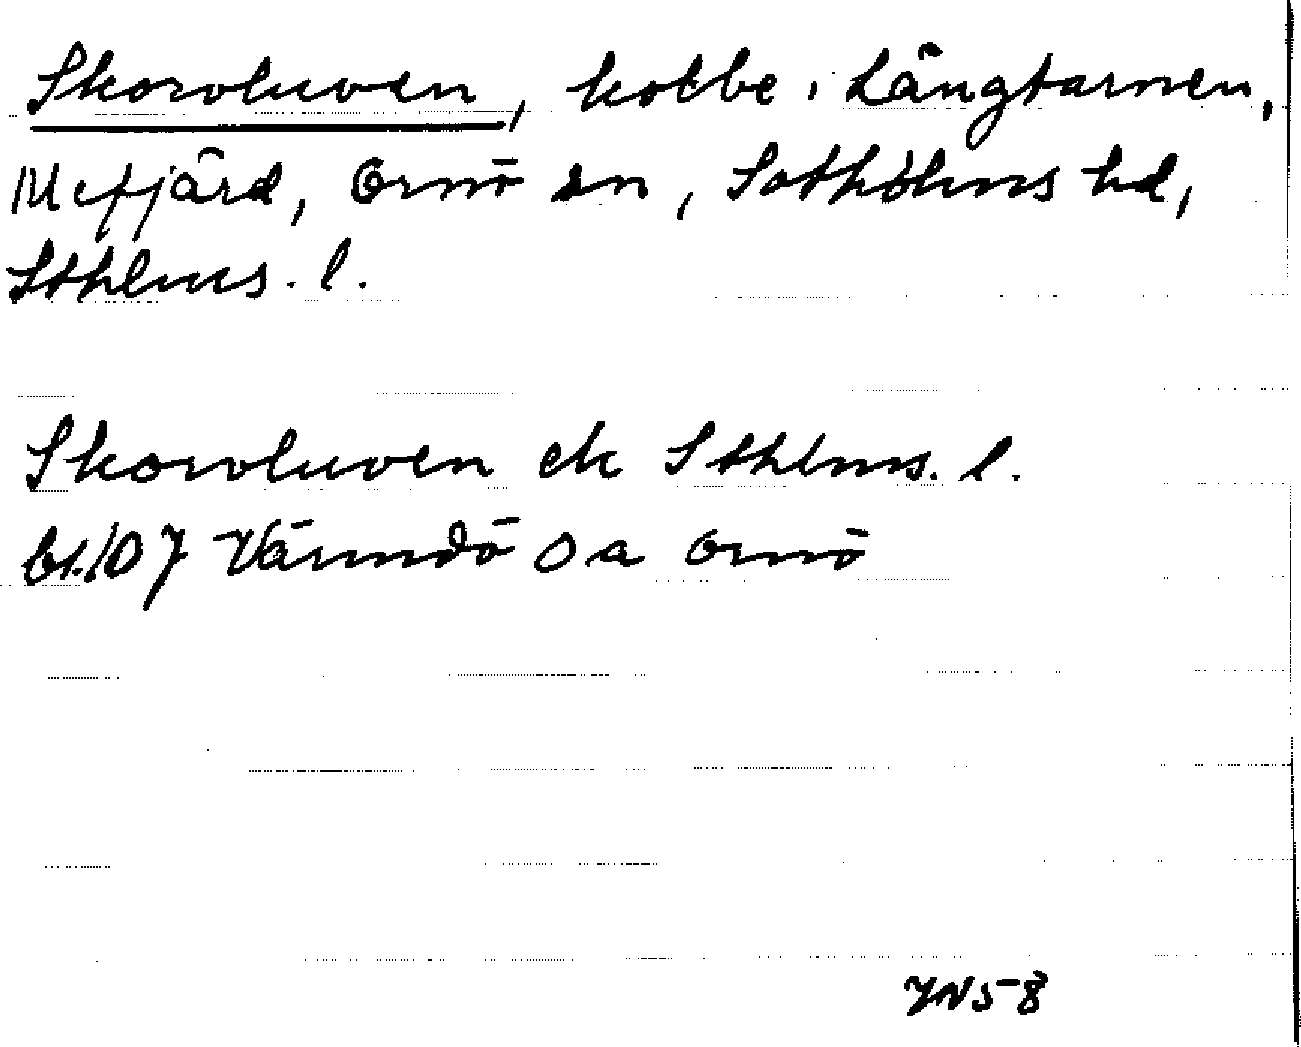 Skorvluven, kobbe i Långtarmen,
Mefjärd, Ornö sn, Sotholms hd,
Sthlms. l.
Skorvluven ek Sthlms. l.
bl. 107 Värmdö Sa Ornö
YN58